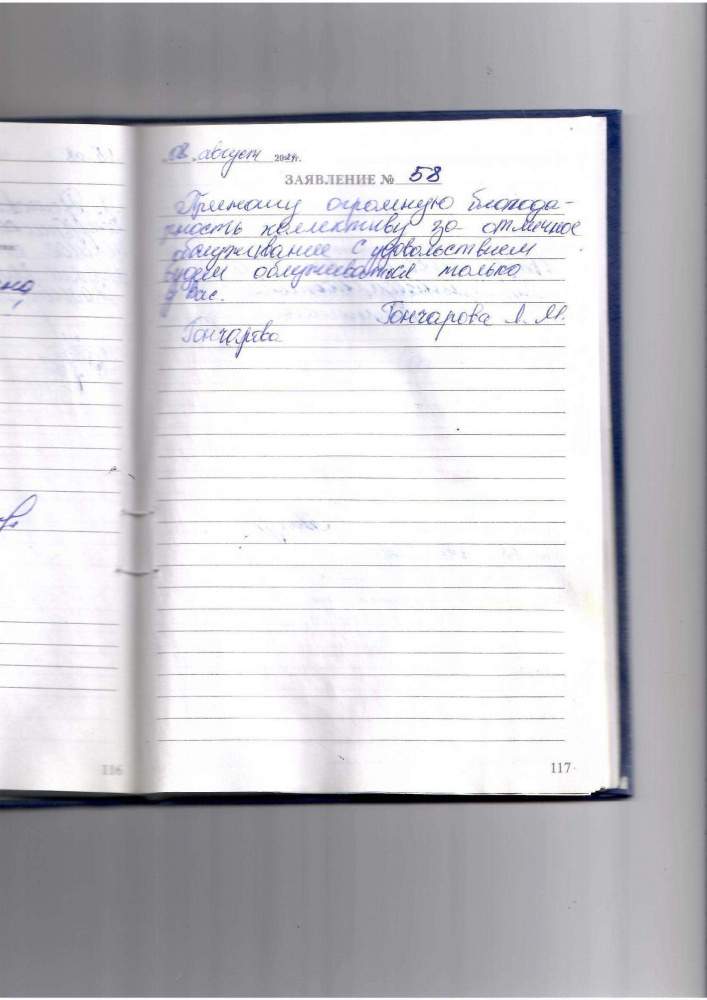 08 август 20 г.
ЗАЯВЛЕНИЕ № 58
Приношу огромную благода-
рность коллективу за отличное
обслуживание С удовольствием
будем облуживаться только
у вас.
Гончарова А. М.
Гончарова
116
117